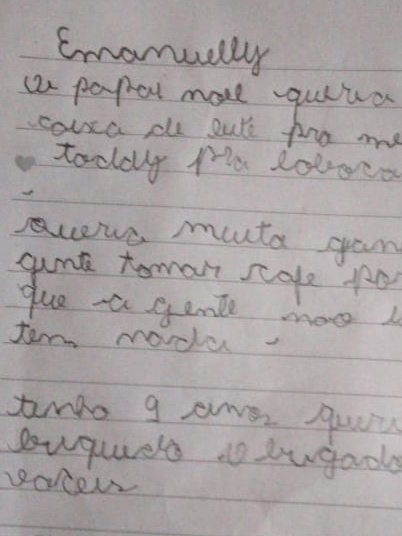 Emanuelly
oi papai noel queria
caixa de leite pra me
toddy pra coloca
queria muita
gente tomar cafe po
que a gente nao
tem nada.
tenho 9 anos queri
briquedo obrigado